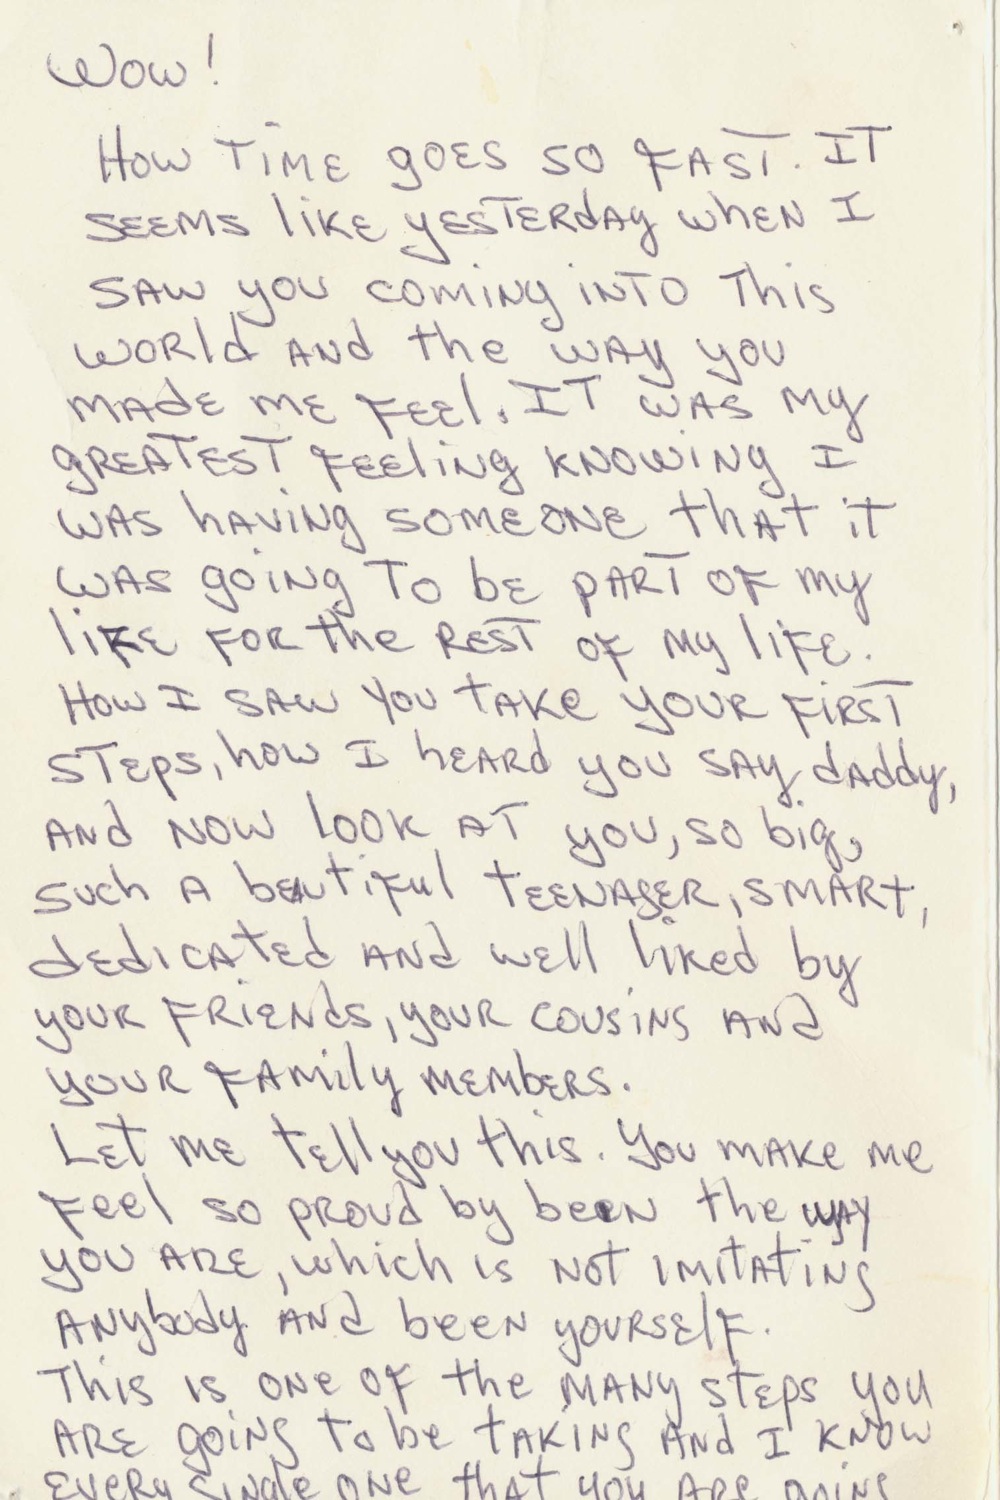 Wow!
How Time goes so FAST. IT
seems like yesterday when I
saw you coming into This
world and the way you
made me feel. IT was my
greatest feeling knowing I
was having someone that it
was going To be part of my
life for the rest of my life.
How I saw you take your first
steps, how I heard you say daddy,
and now look at you, so big,
such a beutiful teenager, smart,
dedicated and well liked by
your friends, your cousins and
your family members.
Let me tell you this. You make me
feel so proud by been the way
you are, which is not imitating
anybody and been yourself.
This is one of the many steps you
are going to be taking and I know
every single one that you are going